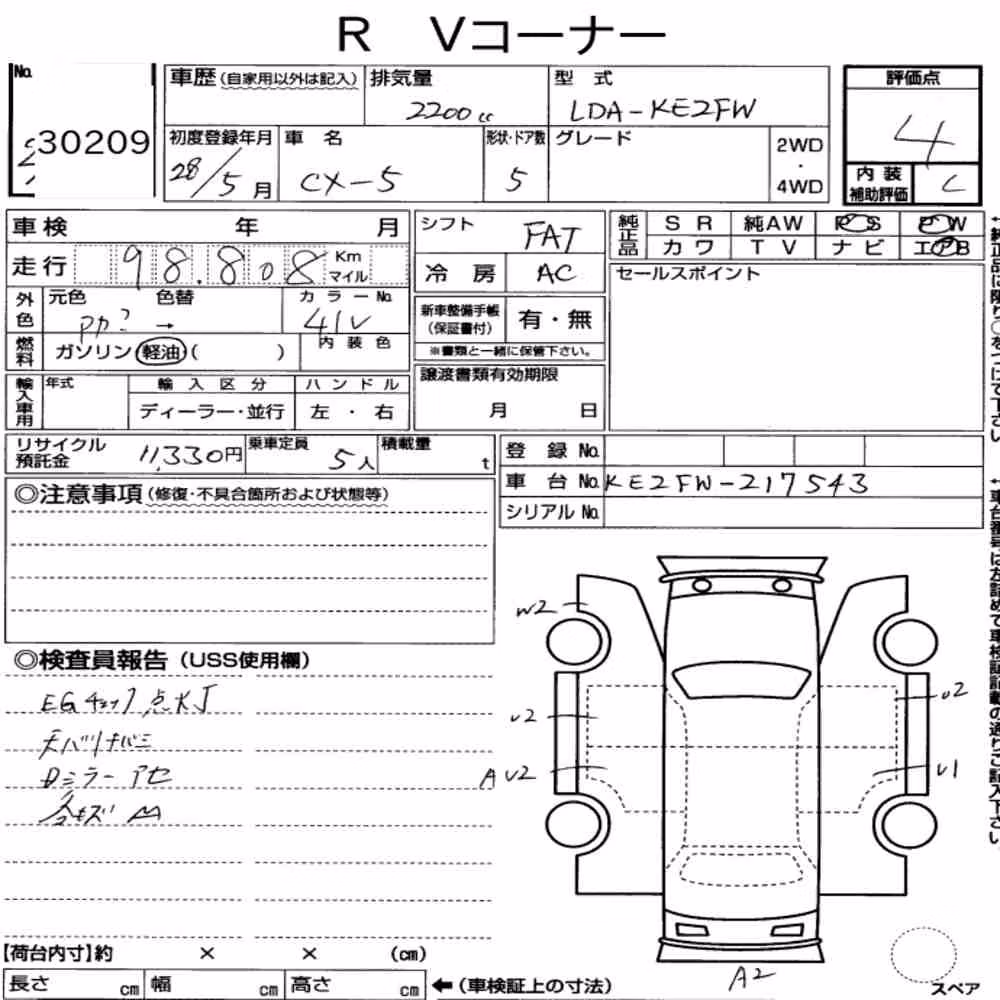 R Vコーナー
No. 30209
車歴(自家用以外は記入)
排気量 2200cc
型式 LDA-KE2FW
評価点 4
初度登録年月 28/5月
車名 CX-5
形状・ドア数 5
グレード
2WD・4WD
内装補助評価 C
車検 年 月
シフト FAT
純正品 SR 純AW PS PW
カワ TV ナビ エアB
走行 98,808 Km マイル
冷房 AC
セールスポイント
外色 元色 色替 カラーNo. 41V
→
新車整備手帳(保証書付) 有・無
※書類と一緒に保管下さい。
燃料 ガソリン 軽油( )
内装色
譲渡書類有効期限
月 日
輸入車用 年式 輸入区分 ハンドル
ディーラー・並行 左・右
リサイクル預託金 11,330円
乗車定員 5人
積載量 t
登録No.
車台No. KE2FW-217543
シリアルNo.
◎注意事項(修復・不具合箇所および状態等)
◎検査員報告(USS使用欄)
EGチェック点灯
Dミラーアセ
W2
U2
U2
AU2
U1
A2
スペア
【荷台内寸】約 × × (cm)
長さ cm 幅 cm 高さ cm ←(車検証上の寸法)